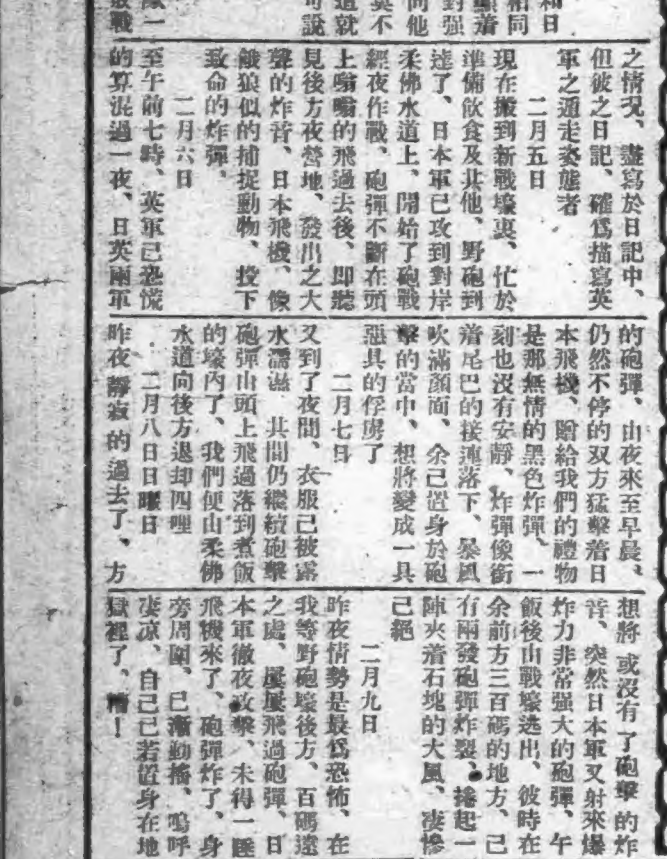 和日
相同
顯着
對强
向他
莫不
這就
可說
敵戰
之情况、盡寫於日記中、
但彼之日記、確爲描寫英
軍之通走姿態者
二月五日
現在搬到新戰壕裏、忙於
準備飲食及其他、野砲到
達了、日本軍已攻到對岸
柔佛水道上、開始了砲戰
經夜作戰、砲彈不斷在頭
上嗡嗡的飛過去後、即聽
見後方夜營地、發出之大
聲的炸音、日本飛機、像
餓狼似的捕捉動物、投下
致命的炸彈。
二月六日
至午前七時、英軍已恐慌
的算混過一夜、日英兩軍
的砲彈、由夜來至早晨、
仍然不停的双方猛擊着日
本飛機、贈給我們的禮物
是那無情的黑色炸彈、一
刻也沒有安靜、炸彈像銜
着尾巴的接連落下、暴風
吹滿顏面、余己置身於砲
擊的當中、想將變成一具
惡具的俘虜了
二月七日
又到了夜間、衣服已被露
水濡滋 其間仍繼續砲擊
砲彈山頭上飛過落到煮飯
的壕內了、我們便由柔佛
水道向後方退却四哩
二月八日日曜日
昨夜靜寂的過去了、方
想將 或沒有了砲擊的炸
音、突然日本軍又射來爆
炸力非常强大的砲彈、午
飯後山戰壕逃出、彼時在
余前方三百碼的地方、己
有兩發砲彈炸裂、捲起一
陣夾着石塊的大風、凄慘
己絕
二月九日
昨夜情勢是最爲恐怖、在
我等野砲壕後方、百碼遠
之處、屢屢飛過砲彈、日
本軍徹夜攻擊、未得一睡
飛機來了、砲彈炸了、身
旁周圍、已漸動搖、嗚呼
凄凉、自己已若置身在地
獄裡了、糟！